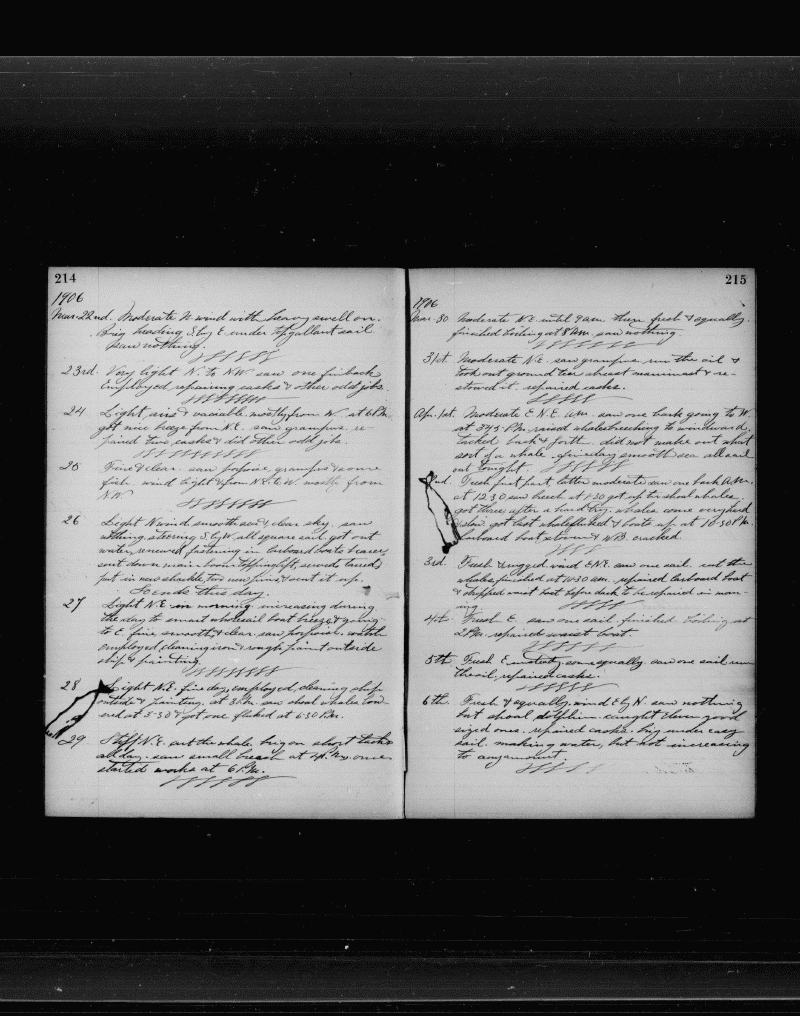 214
1906
Mar. 22nd. Moderate N wind with heavy swell on.
Brig heading S by E under topgallant sail
saw nothing.
23rd. Very light N. to NW saw one finback
Employed repairing casks & other odd jobs.
24 Light airs & variable mostly from W. at 6 P.M.
got nice breeze from N.E. saw grampus re-
paired two casks & did other odd jobs.
25 Fine & clear. saw porpoise, grampus & some
fish wind light & from N.E. to W. mostly from
N.W
26 Light N wind smooth sea & clear sky. saw
nothing, steering S by W, all square sail, got out
water, renewed fastening in larboard boats bearer,
sent down main boom topping lift, served tarred,
put in new shackle, two new pins & sent it up.
So ends this day.
27 Light N.E. in morning increasing during
the day to smart wholesail boat breeze & going
to E. fine smooth & clear. saw porpoise. watch
employed cleaning iron & rough paint outside
ship & painting.
28 Light N.E. fine day, employed cleaning ship
outside & painting, at 3 P.M. saw shoal whales low-
ered at 5-30 & got one fluked at 6 30 P.M.
29 Stiff N.E. cut the whale, brig on short tacks
all day. saw small breach at 4 P.M. once
started works at 6 P.M.
215
1906
Mar. 30 Moderate N.E. until 9 am. then fresh & squally.
finished boiling at 8 Am. saw nothing.
31st. Moderate N.E. saw grampus run the oil &
took out ground tier abreast mainmast & re-
stowed it. repaired casks.
Apr. 1st. Moderate E N.E. Am. saw one bark going to W.
at 3 45 P.M. raised whales breeching to windward,
tacked back & forth. did not make out what
sort of a whale. fine day smooth sea all sail
out tonight
2nd. Fresh first part latter moderate saw one bark A.M.
at 12 30 saw breech at 1-30 got up to shoal whales,
got three after a hard try. whales come very hard
slow. got last whale fluked & boats up at 10-30 P.M.
larboard boat stoven & W.B. cracked.
3rd. Fresh & rugged wind E N.E. saw one sail. cut the
whales, finished at 10-30 am. repaired larboard boat
& shipped waist boat before dark to be repaired in morn-
ing
4th Fresh E. saw one sail finished boiling at
2 P.M. repaired waist boat.
5th Fresh E. mostly, some squally. saw one sail run
the oil, repaired casks.
6th Fresh & squally, wind E by N. saw nothing
but shoal dolphin. caught eleven good
sized ones. repaired casks. brig under easy
sail. making water, but not increasing
to any amount.